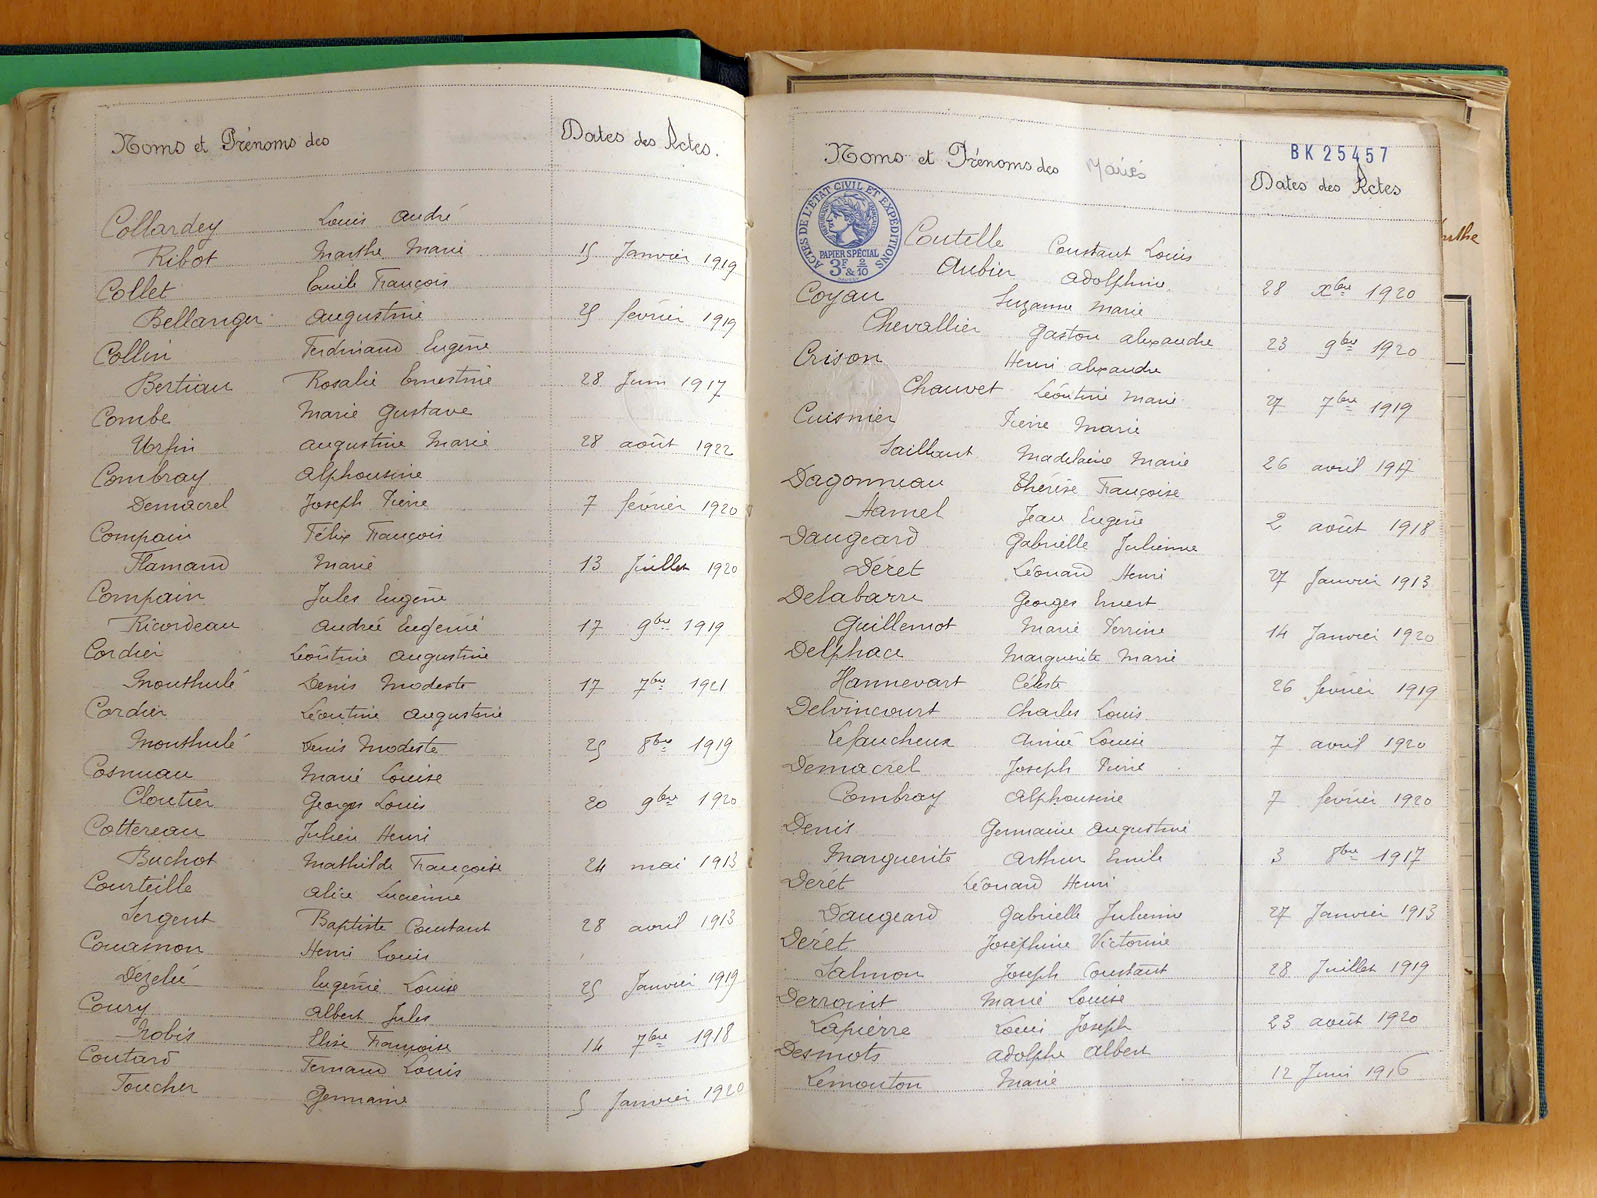 Noms et Prénoms des
Dates des Actes.
Collardey Louis André
Ribot Marthe Marie 15 Janvier 1919
Collet Emile François
Bellanger Augustine 25 février 1919
Collin Ferdinand Eugène
Bertiau Rosalie Ernestine 28 Juin 1917
Combe Marie Gustave
Urfin Augustine Marie 28 août 1922
Combray Alphonsine
Demacrel Joseph Pierre 7 février 1920
Compain Félix François
Flamand Marie 13 Juillet 1920
Compain Jules Eugène
Ricordeau Andrée Eugénie 17 9bre 1919
Cordier Léontine Augustine
Monthulé Denis Modeste 17 7bre 1921
Cordier Léontine Augustine
Monthulé Denis Modeste 25 8bre 1919
Cosnuau Marie Louise
Cloutier Georges Louis 20 9bre 1920
Cottereau Julien Henri
Buchot Mathilde Françoise 24 mai 1913
Courteille Alice Lucienne
Sergent Baptiste Constant 28 avril 1913
Couasnon Henri Louis
Dézelée Eugénie Louise 25 Janvier 1919
Coury Albert Jules
Nobis Elise Françoise 14 7bre 1918
Coutard Fernand Louis
Foucher Germaine 5 Janvier 1920
BK 25457
Noms et Prénoms des Mariés
Dates des Actes
ACTES DE L'ETAT CIVIL ET EXPEDITIONS
PAPIER SPECIAL
3F & 2/10
Coutelle Constant Louis
Aubier Adolphine 28 Xbre 1920
Coyau Suzanne Marie
Chevallier Gaston Alexandre 23 9bre 1920
Crison Henri Alexandre
Chauvet Léontine Marie 27 7bre 1919
Cuisnier Pierre Marie
Saillant Madelaine Marie 26 avril 1917
Dagonneau Thérèse Françoise
Hamel Jean Eugène 2 août 1918
Daugeard Gabrielle Julienne
Déret Léonard Henri 27 Janvier 1913
Delabarre Georges Ernest
Guillemot Marie Perrine 14 Janvier 1920
Delphace Marguerite Marie
Hannevart Céleste 26 février 1919
Delvincourt Charles Louis
Lefaucheux Aimée Louise 7 avril 1920
Demacrel Joseph Pierre
Combray Alphonsine 7 février 1920
Denis Germaine Augustine
Marguerite Arthur Emile 3 8bre 1917
Déret Léonard Henri
Daugeard Gabrielle Julienne 27 Janvier 1913
Déret Joséphine Victorine
Salmon Joseph Constant 28 Juillet 1919
Derraint Marie Louise
Lapierre Louis Joseph 23 août 1920
Desmots Adolphe Albert
Lemonton Marie 12 Juin 1916